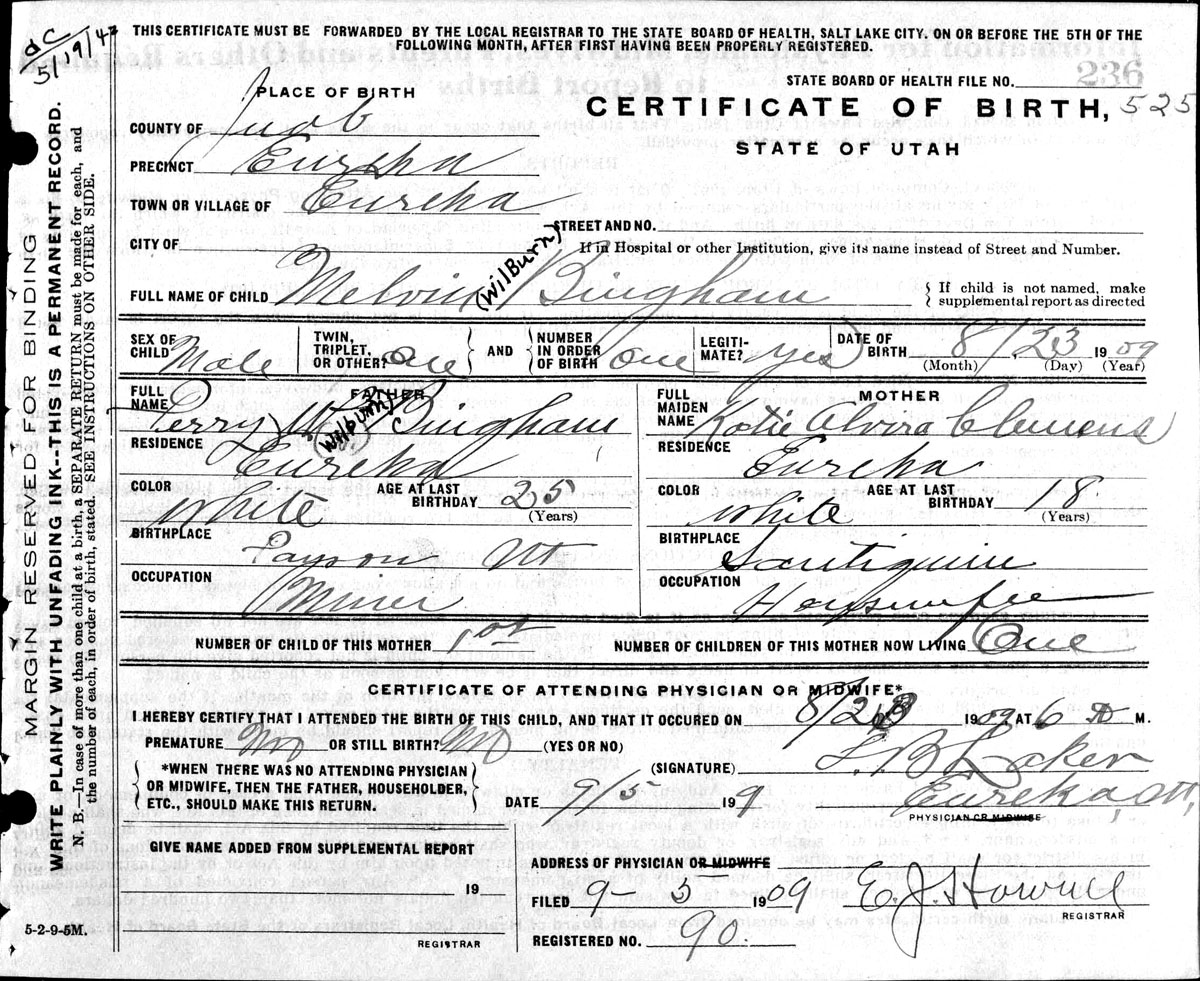 dc 5/19/47
THIS CERTIFICATE MUST BE FORWARDED BY THE LOCAL REGISTRAR TO THE STATE BOARD OF HEALTH, SALT LAKE CITY. ON OR BEFORE THE 5TH OF THE
FOLLOWING MONTH, AFTER FIRST HAVING BEEN PROPERLY REGISTERED.
236
STATE BOARD OF HEALTH FILE NO.
PLACE OF BIRTH
CERTIFICATE OF BIRTH, 525
STATE OF UTAH
COUNTY OF Juab
PRECINCT Eureka
TOWN OR VILLAGE OF Eureka
STREET AND NO.
CITY OF
If in Hospital or other Institution, give its name instead of Street and Number.
FULL NAME OF CHILD Melvin (Wilburn) Bingham
If child is not named, make
supplemental report as directed
SEX OF CHILD Male TWIN, TRIPLET, OR OTHER? one AND NUMBER IN ORDER OF BIRTH one LEGITI-MATE? yes DATE OF BIRTH 8/23 1909
(Month) (Day) (Year)
FATHER
FULL NAME Perry W (Wilburn) Bingham
RESIDENCE Eureka
COLOR White AGE AT LAST BIRTHDAY 25
(Years)
BIRTHPLACE Payson Ut
OCCUPATION Miner
MOTHER
FULL MAIDEN NAME Katie Alvira Clemens
RESIDENCE Eureka
COLOR White AGE AT LAST BIRTHDAY 18
(Years)
BIRTHPLACE Santiquin
OCCUPATION Housewife
NUMBER OF CHILD OF THIS MOTHER 1st NUMBER OF CHILDREN OF THIS MOTHER NOW LIVING One
CERTIFICATE OF ATTENDING PHYSICIAN OR MIDWIFE*
I HEREBY CERTIFY THAT I ATTENDED THE BIRTH OF THIS CHILD, AND THAT IT OCCURED ON 8/23 1909 AT 6 M.
PREMATURE No OR STILL BIRTH? No (YES OR NO)
*WHEN THERE WAS NO ATTENDING PHYSICIAN
OR MIDWIFE, THEN THE FATHER, HOUSEHOLDER,
ETC., SHOULD MAKE THIS RETURN.
(SIGNATURE)
DATE 9/3 199 Eureka Ut,
PHYSICIAN OR MIDWIFE
GIVE NAME ADDED FROM SUPPLEMENTAL REPORT
19
REGISTRAR
ADDRESS OF PHYSICIAN OR MIDWIFE
FILED 9-3 1909 E. J. Howell
REGISTRAR
REGISTERED NO. 90.
5-2-9-5M.
MARGIN RESERVED FOR BINDING
WRITE PLAINLY WITH UNFADING INK--THIS IS A PERMANENT RECORD.
N. B.—In case of more than one child at a birth, a SEPARATE RETURN must be made for each, and
the number of each, in order of birth, stated. SEE INSTRUCTIONS ON OTHER SIDE.